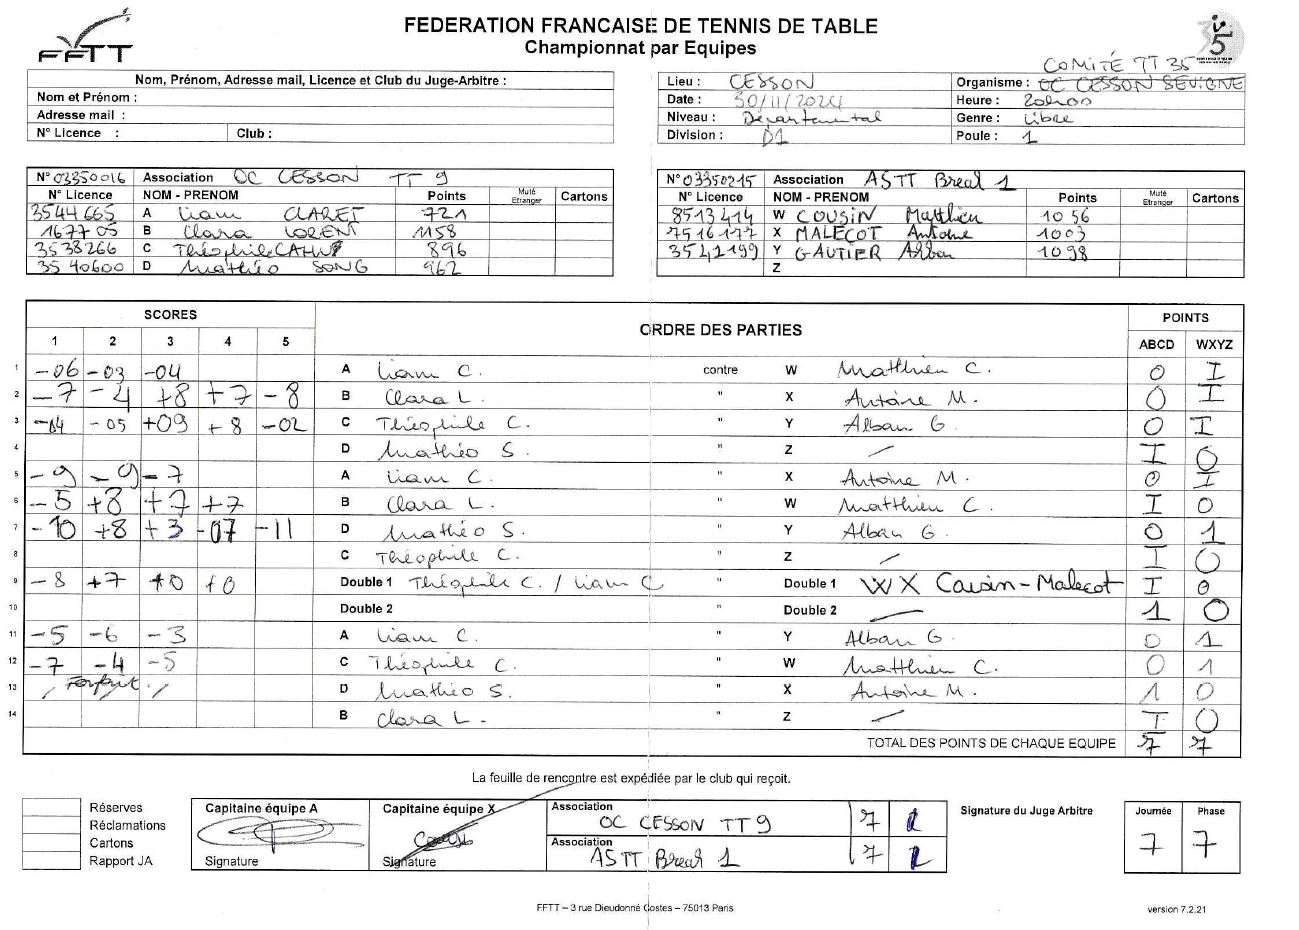 FFTT
FEDERATION FRANCAISE DE TENNIS DE TABLE
Championnat par Equipes
35
COMITÉ TT 35
Nom, Prénom, Adresse mail, Licence et Club du Juge-Arbitre :
Nom et Prénom :
Adresse mail :
N° Licence : Club :
Lieu : CESSON Organisme : OC CESSON SEVIGNE
Date : 30/11/2024 Heure : 20h00
Niveau : Départemental Genre : Libre
Division : D1 Poule : 1
N° 03350016 Association OC CESSON TT 9
N° Licence NOM - PRENOM Points Muté Etranger Cartons
3544665 A Liam CLARET 721
1677705 B Clara LORENT 1158
3538266 C Théophile 896
3540600 D Mathéo SONG 962
N° 03350215 Association ASTT Breal 1
N° Licence NOM - PRENOM Points Muté Etranger Cartons
8513414 W COUSIN Matthieu 1056
7516177 X MALECOT Antoine 1003
3542199 Y GAUTIER Alban 1098
Z
SCORES ORDRE DES PARTIES POINTS
1 2 3 4 5 ABCD WXYZ
1 -06 -03 -04 A Liam C. contre W Matthieu C. 0 I
2 -7 -4 +8 +7 -8 B Clara L. " X Antoine M. 0 I
3 -04 -05 +09 +8 -02 C Théophile C. " Y Alban G. 0 I
4 D Mathéo S. " Z / I 0
5 -9 -9 -7 A Liam C. " X Antoine M. 0 I
6 -5 +8 +7 +7 B Clara L. " W Matthieu C. I 0
7 -10 +8 +3 -07 -11 D Mathéo S. " Y Alban G. 0 1
8 C Théophile C. " Z / I 0
9 -8 +7 +0 +0 Double 1 Théophile C. / Liam C " Double 1 WX Cousin-Malecot I 0
10 Double 2 " Double 2 / 1 0
11 -5 -6 -3 A Liam C. " Y Alban G. 0 1
12 -7 -4 -5 C Théophile C. " W Matthieu C. 0 1
13 / Forfait / D Mathéo S. " X Antoine M. 1 0
14 B Clara L. " Z / I 0
TOTAL DES POINTS DE CHAQUE EQUIPE 7 7
La feuille de rencontre est expédiée par le club qui reçoit.
Réserves
Réclamations
Cartons
Rapport JA
Capitaine équipe A
Signature
Capitaine équipe X
Signature
Association OC CESSON TT 9 7
Association ASTT Breal 1 7
Signature du Juge Arbitre
Journée Phase
7 7
FFTT – 3 rue Dieudonné Costes – 75013 Paris
version 7.2.21